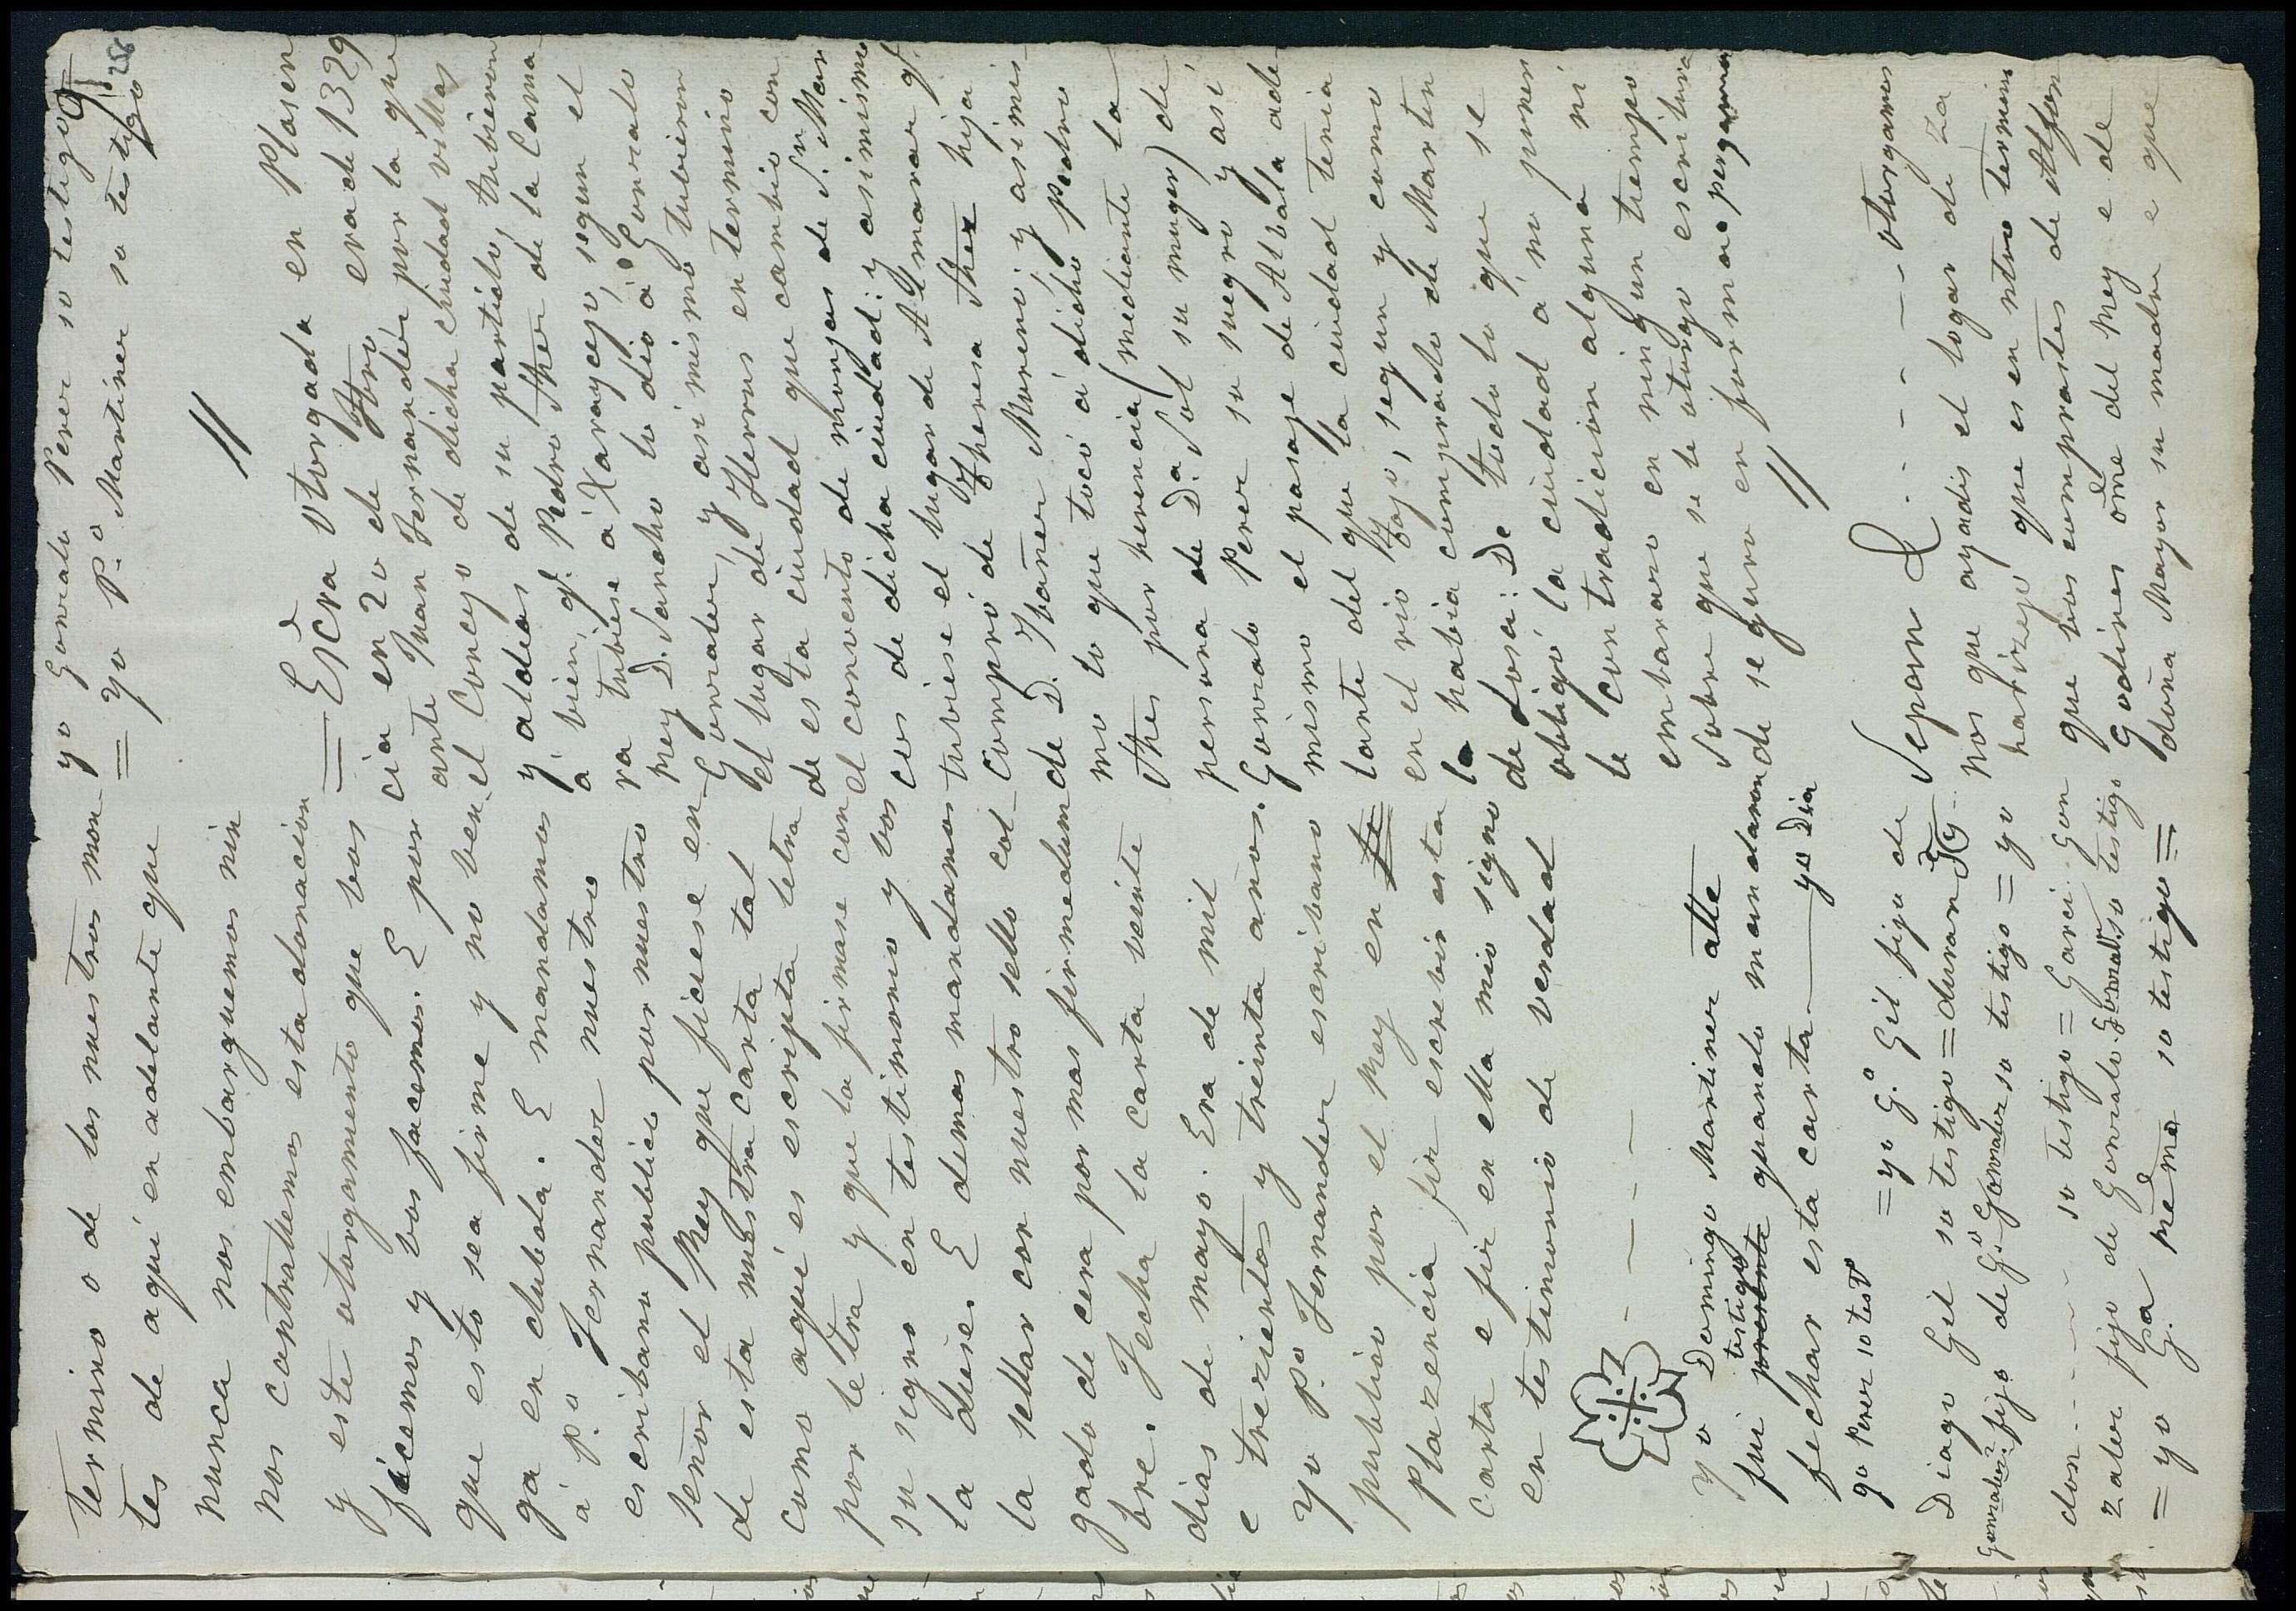 termino o de los nuestros mon-
tes de aqui en adelante que
nunca nos embarguemos nin
nos contrallemos esta donacion
y este otorgamiento que vos
facemos y vos facemos. E por
que esto sea firme y no ven-
ga en dubda. E mandamos
á P.º Fernandez nuestro
escribano publico por nuestro
señor el Rey que ficiese en-
de esta nuestra carta tal
como aqui es escripta letra
por letra y que la firmase con
su signo en testimonio y vos
la diese. E demas mandamos
la sellar con nuestro sello col-
gado de cera por mas firmedum
bre. Fecha la carta veinte
dias de mayo. Era de mil
e trezientos y treinta años.
Yo P.º Fernandez escribano
publico por el Rey en
Plazencia fiz escrebir esta
carta e fiz en ella mio signo
en testimonio de verdad
Yo Domingo Martinez alle
fui testigo quando mandaron
fechar esta carta — yo Dia
go Perez so testº = yo G.º Gil fijo de
Diago Gil so testigo = duran
Gonzalez fijo de G.º Gonzalez so testigo = yo
don - - - - so testigo = Garci Gon
zalez fijo de Gonzalo Gonzalz so testigo
= yo G.ª so testigo =
yo Gonzalo Perez so testigo
= yo P.º Martinez so testigo
256
//
= Escra otorgada en Plasen
cia en 20 de era de 1329
ante Juan Fernandez por la que
el Concejo de dicha ciudad villas
y aldeas de su partido, tubieron
á bien, q.e Pedro Ther de la Cama
ra tubiese á Xarayzejo, segun el
Rey D. Sancho lo dió á Gonzalo
Gonzalez, y asi mismo tubieron
el lugar de Herus en termino
de esta ciudad que cambió con
el convento de monjas de S.n Mar
cos de dicha ciudad: y asimismo
tubiese el lugar de Almaraz q.e
compró de Theresa hija
de D. Ibañez Moreno; y asimis-
mo lo que tocó á dicho Pedro
Thes por herencia (mediante la
persona de D.ª Sol su muger) de
Gonzalo Perez su suegro y asi
mismo el pasaje de Albala ade
lante del que la ciudad tenia
en el rio Tajo, segun y como
lo habia comprado de Martin
de Sosa: De todo lo que se
obligó la ciudad á no poner
le contradicion alguna ni
embarazo en ningun tiempo
sobre que se le otorgo escritura
de seguro en forma pergamo
//
Sepan & - - - - - - otorgamos
nos que ayades el logar de Za
haRizejo que es en ntro termino
que vos comprastes de Alfon
Godinez ome del Rey e de
doña Mayor su madre e que